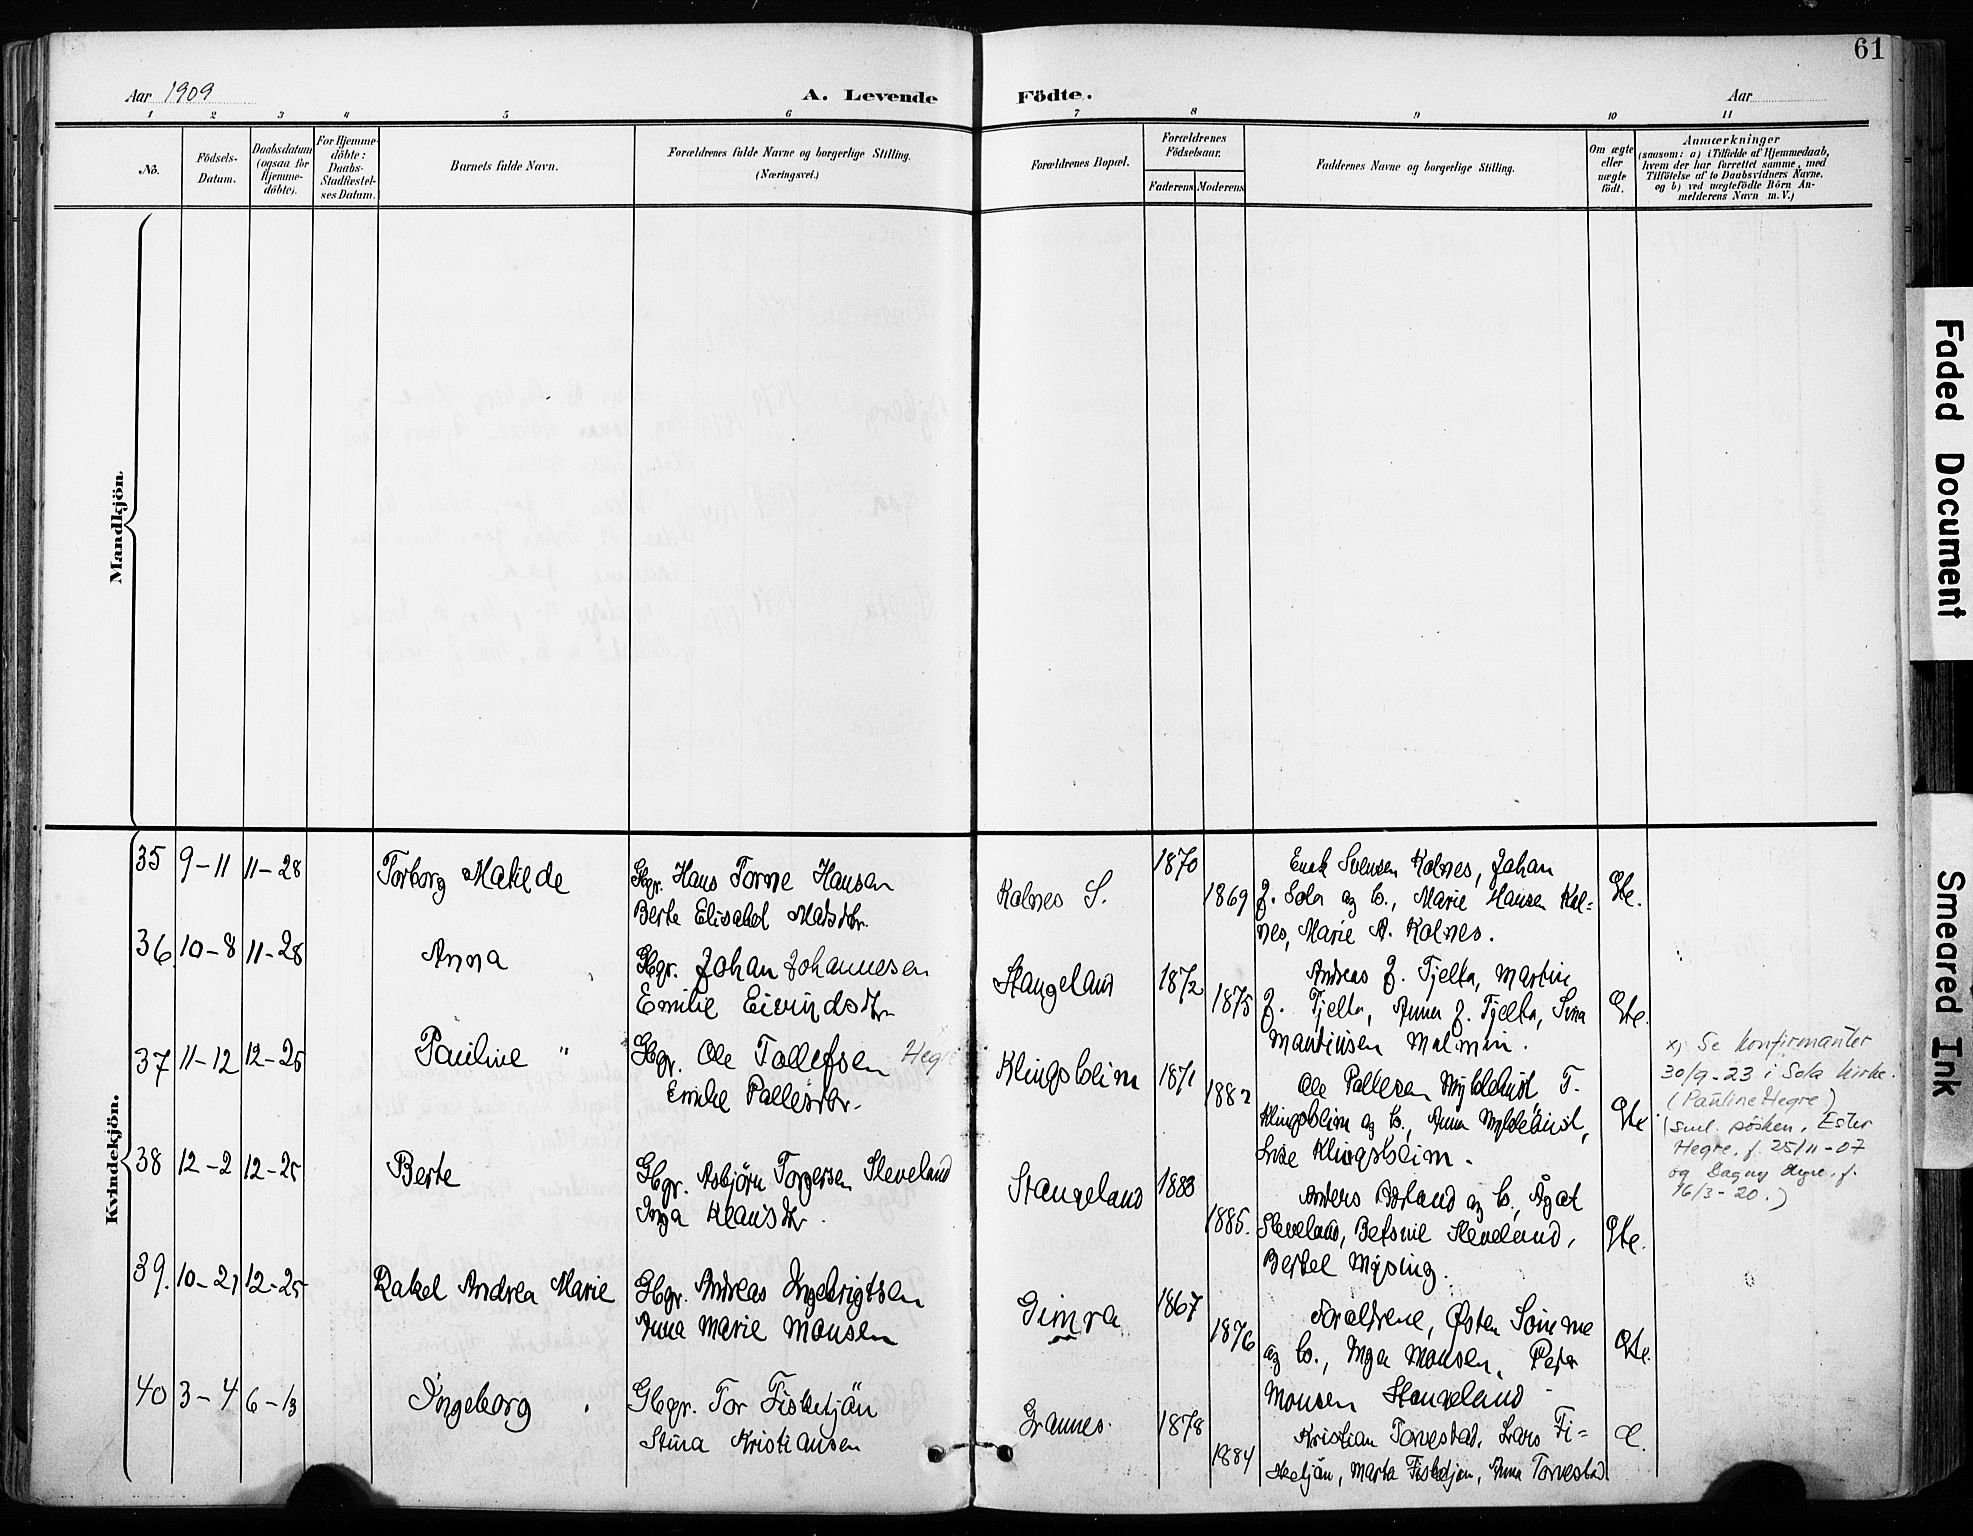 61
Aar 1909
A. Levende Födte.
Aar
1 2 3 4 5 6 7 8 9 10 11
No.
Födsels-
Datum.
Daabsdatum
(ogsaa for
Hjemme-
döbte).
For Hjemme-
döbte:
Daabs-
Stadfæstel-
ses Datum.
Barnets fulde Navn.
Forældrenes fulde Navne og borgerlige Stilling.
(Næringsvei.)
Forældrenes Bopæl.
Forældrenes
Födselsaar.
Faderens Moderens
Faddernes Navne og borgerlige Stilling.
Om ægte
eller
uægte
født.
Anmærkninger
(saasom: a) i Tilfælde af Hjemmedaab,
hvem der har forrettet samme, med
Tilföielse af to Daabsvidners Navne,
og b) ved uægtefödte Börn An-
melderens Navn m. V.)
Mandkjön.
Kvindekjön.
35 9-11 11-28 Torborg Matilde Gbgr. Hans Torne Hansen
Berte Elisabet Matsdtr.
Kolnes S. 1870 1869
Svensen Kolnes, Johan
J. Sola og C., Marie Hansen Kol=
nes, Marie A. Kolnes.
Gte.
36. 10-8 11-28 Anna Gbgr. Johan Johannesen
Emilie Eivindsdtr
Stangeland 1872 1875
Andreas J. Tjelta, Martin
J. Tjelta, Anna J. Tjelta, Sina
Martinsen Malmin.
Gte.
37 11-12 12-26 Pauline " Gbgr. Ole Tollefsen Hegre
Emilie Pallesdtr.
Klingsheim 1871 1882
Ole Pallesen Myklebust, T.
Klingsheim og C., Anna Myklebust,
Lise Klingsheim.
Gte
x) Se konfirmanter
30/9-23 i Sola kirke.
(Pauline Hegre)
(sml. søsken, Ester
Hegre, f. 25/11-07
og Dagny Hegre, f.
16/3-20.)
38 12-2 12-25 Berte Gbgr. Asbjörn Torgersen Sleveland
Inga Klausdtr.
Stangeland 1883 1885.
Anders og C., Ågat
Sleveland, Betsine Sleveland,
Bertel Mysing.
Gte.
39. 10-21 12-25 Rakel Andrea Marie Gbgr. Andreas Ingebrigtsen
Anna Marie Monsen
Gimra 1867 1876
Forældrene, Østen Sömme
og C., Inga Monsen, Peter
Monsen Stangeland
Gte.
40 3-4 6-13 Ingeborg Gbgr. Tor Fisketjön
Stina Kristiansen
Grannes. 1878 1884
Kristian Torvestad, Lars Fi=
sketjön, Marta Fisketjön, Anna Torvestad
Faded Document
Smeared Ink